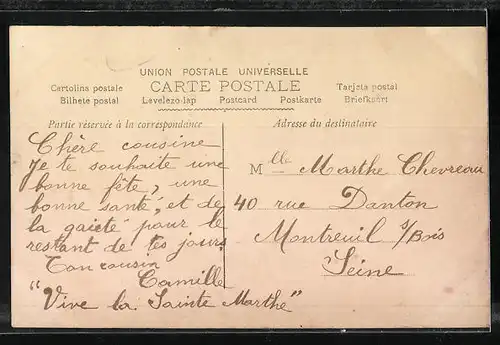 UNION POSTALE UNIVERSELLE
CARTE POSTALE
Cartolina postale
Tarjeta postal
Bilhete postal Levelezo-lap Postcard Postkarte Briefkaart
Partie réservée à la correspondance
Adresse du destinataire
Chère cousine
Je te souhaite une
bonne fête, une
bonne santé, et de
la gaieté pour le
restant de tes jours
Ton cousin
Camille
"Vive la Sainte Marthe"
Mlle Marthe Chevreau
40 rue Danton
Montreuil s/Bois
Seine